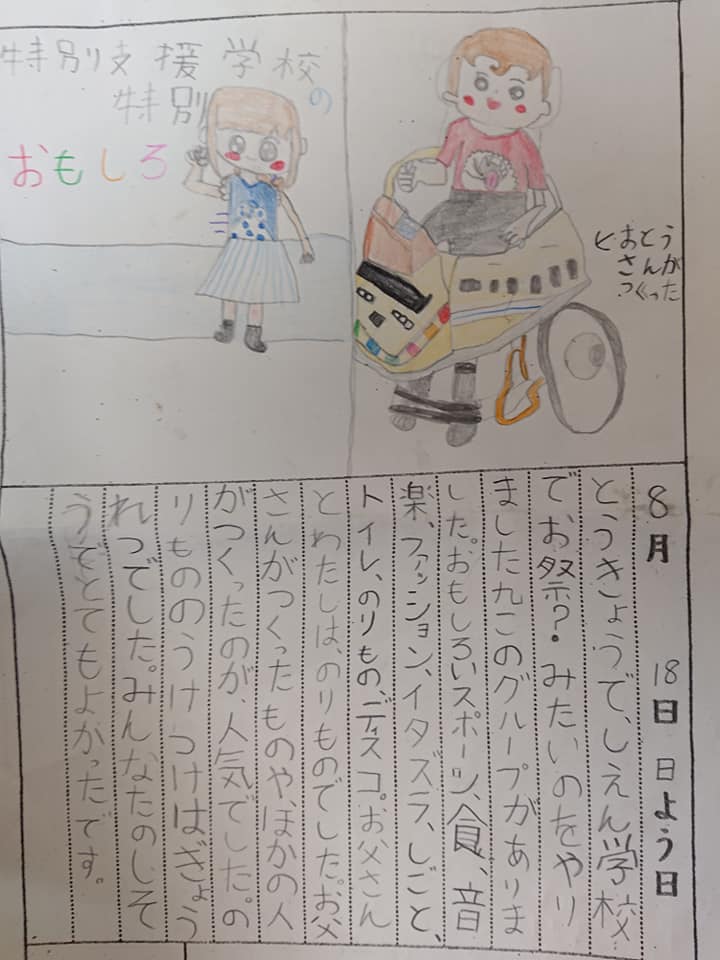 特別支援学校の
特別
おもしろ
ヒおとう
さんが
つくった
8月 18日 日よう日
とうきょうで、しえん学校
でお祭?・みたいのをやり
ました九このグループがありま
した。おもしろいスポーツ、食、音
楽、ファッション、イタズラ、しごと、
トイレ、のりもの、ディスコ。お父さん
とわたしは、のりものでした。お父
さんがつくったものや、ほかの人
がつくったのが、人気でした。の
りもののうけつけはぎょう
れつでした。みんなたのしそ
うでとてもよかったです。